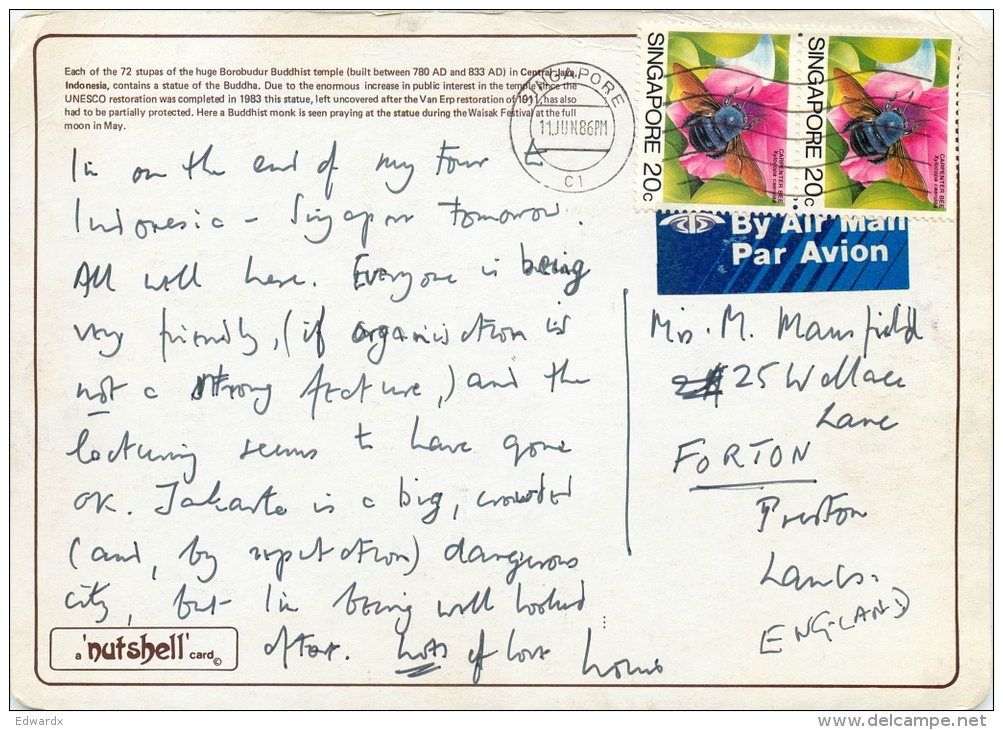 Each of the 72 stupas of the huge Borobudur Buddhist temple (built between 780 AD and 833 AD) in Central Java,
Indonesia, contains a statue of the Buddha. Due to the enormous increase in public interest in the temple since the
UNESCO restoration was completed in 1983 this statue, left uncovered after the Van Erp restoration of 1911, has also
had to be partially protected. Here a Buddhist monk is seen praying at the statue during the Waisak Festival at the full
moon in May.
I'm on the end of my tour to
Indonesia - Singapore tomorrow.
All well here. Everyone is being
very friendly, (if organisation is
not a strong feature,) and the
lecturing seems to have gone
OK. Jakarta is a big, crowded
(and, by reputation) dangerous
city, but I'm being well looked
after. Lots of love
a 'nutshell' card ©
SINGAPORE
11JUN86PM
C1
SINGAPORE 20c
CARPENTER BEE
Xylocopa caerulea
SINGAPORE 20c
CARPENTER BEE
Xylocopa caerulea
By Air Mail
Par Avion
Mrs. M. Mansfield
25 Wallace
Lane
FORTON
Preston
Lancs.
ENGLAND
Edwardx
delcampe.net